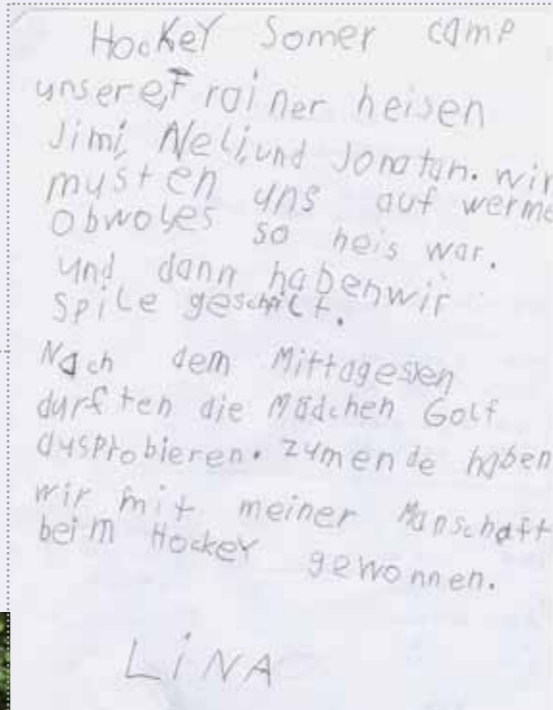 HocKeY Somer camp
unsere Trainer heisen
Jimi, Neli, und Jonatan. wir
musten uns auf werme
obwoles so heis war.
und dann habenwir
spile geschilt.
Nach dem Mittagessen
durften die Mädchen Golf
ausprobieren. zumende haben
wir mit meiner Manschaft
beim HockeY gewonnen.
LiNA